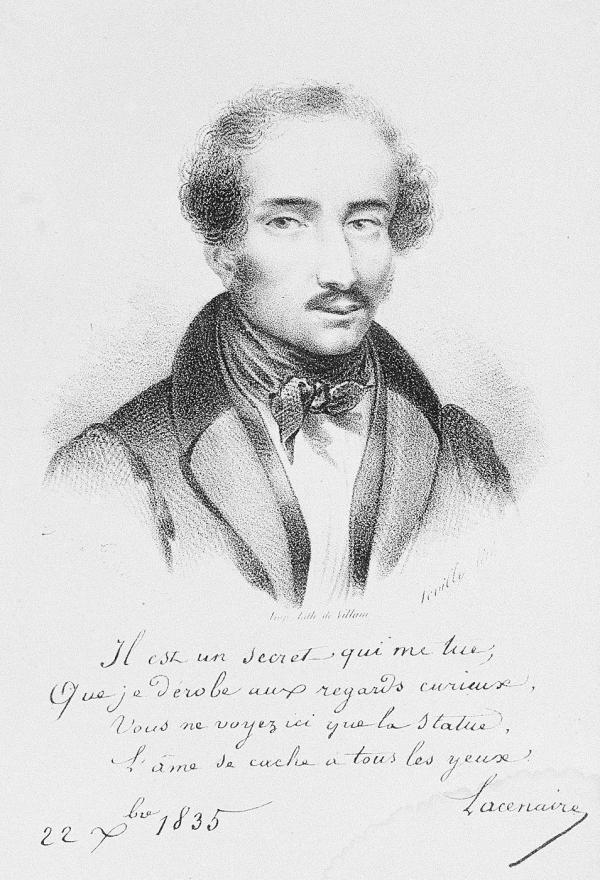 lith.
Imp. Lith. de Villain
Il est un secret qui me tue,
Que je dérobe aux regards curieux,
Vous ne voyez ici que la Statue,
L'âme se cache a tous les yeux.
22 Xbre 1835
Lacenaire